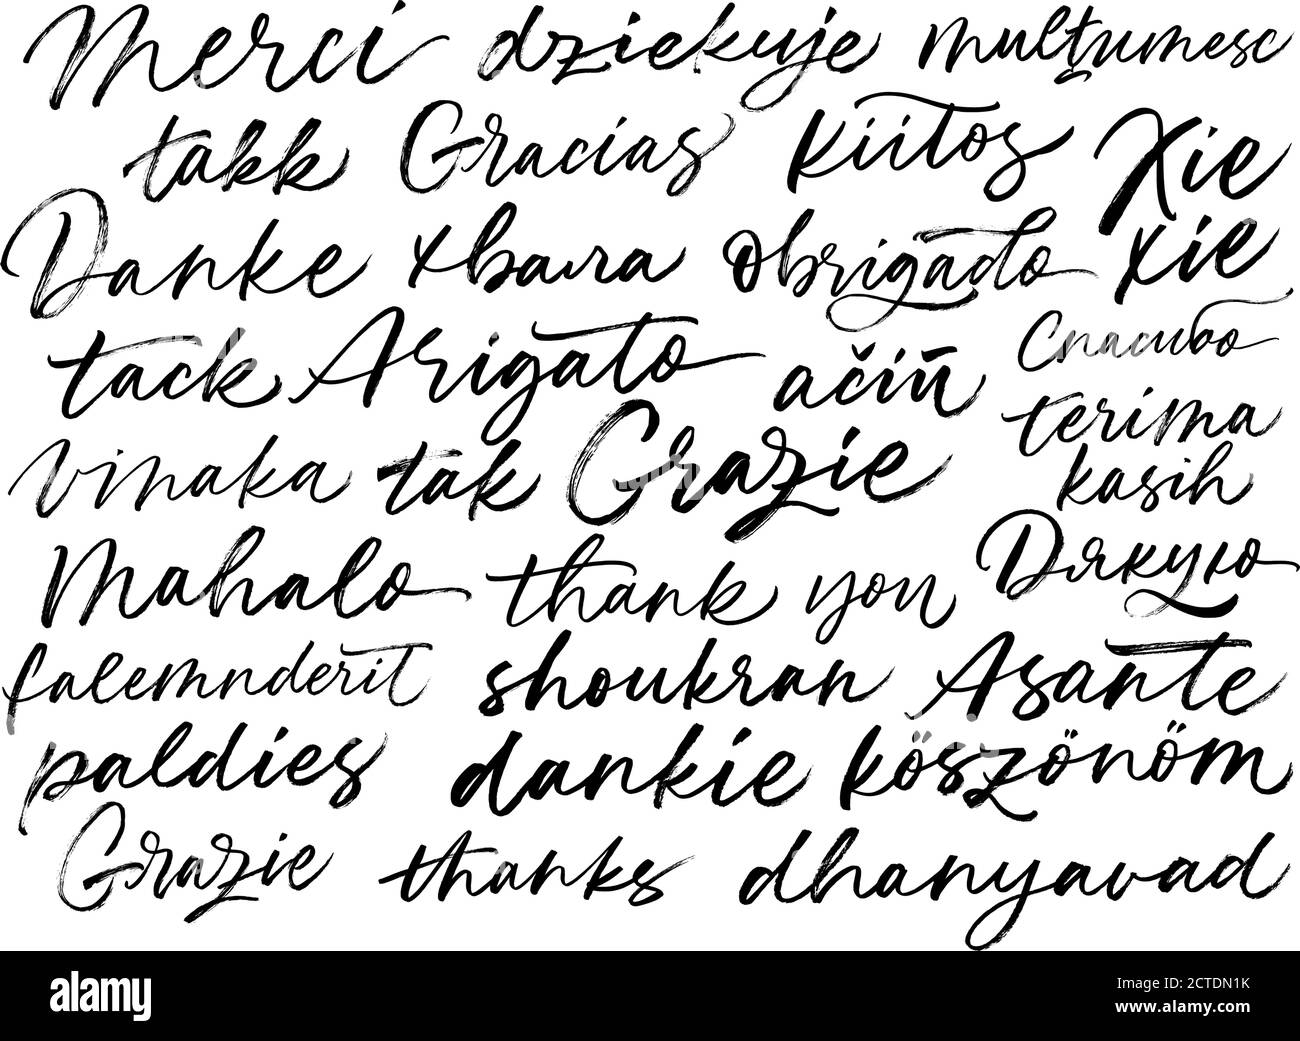 Merci dziekuje mulţumesc
takk Gracias kiitos Xie
Danke хвала obrigado xie
tack Arigato ačiū Спасибо
terima
vinaka tak Grazie kasih
Mahalo thank you Дякую
falemnderit shoukran Asante
paldies dankie köszönöm
Grazie thanks dhanyavad
alamy
alamy
a
a
a
alamy
Image ID: 2CTDN1K
www.alamy.com